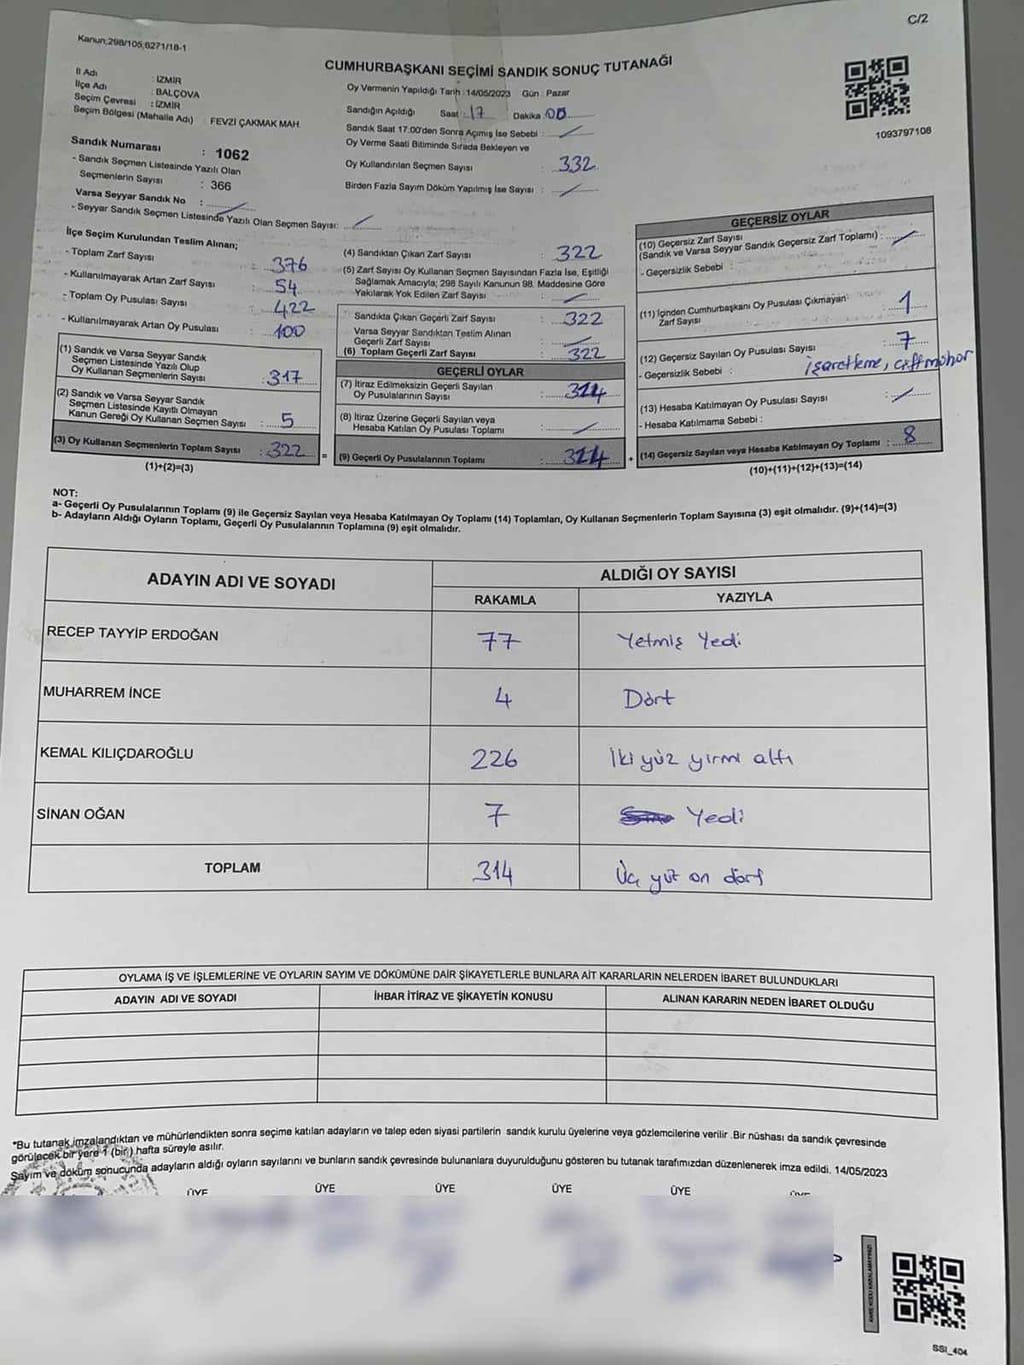 C/2
Kanun;298/105;6271/18-1
CUMHURBAŞKANI SEÇİMİ SANDIK SONUÇ TUTANAĞI
İl Adı : İZMİR
İlçe Adı : BALÇOVA
Seçim Çevresi : İZMİR
Seçim Bölgesi (Mahalle Adı) FEVZİ ÇAKMAK MAH.
Sandık Numarası : 1062
- Sandık Seçmen Listesinde Yazılı Olan
Seçmenlerin Sayısı : 366
Varsa Seyyar Sandık No :
- Seyyar Sandık Seçmen Listesinde Yazılı Olan Seçmen Sayısı:
Oy Vermenin Yapıldığı Tarih :14/05/2023 Gün : Pazar
Sandığın Açıldığı Saat : 17 Dakika : 00
Sandık Saat 17.00'den Sonra Açımış İse Sebebi :
Oy Verme Saati Bitiminde Sırada Bekleyen ve
Oy Kullandırılan Seçmen Sayısı : 332
Birden Fazla Sayım Döküm Yapılmış İse Sayısı :
1093797108
İlçe Seçim Kurulundan Teslim Alınan;
- Toplam Zarf Sayısı : 376
- Kullanılmayarak Artan Zarf Sayısı : 54
- Toplam Oy Pusulası Sayısı : 422
- Kullanılmayarak Artan Oy Pusulası : 100
(1) Sandık ve Varsa Seyyar Sandık
Seçmen Listesinde Yazılı Olup
Oy Kullanan Seçmenlerin Sayısı : 317
(2) Sandık ve Varsa Seyyar Sandık
Seçmen Listesinde Kayıtlı Olmayan
Kanun Gereği Oy Kullanan Seçmen Sayısı : 5
(3) Oy Kullanan Seçmenlerin Toplam Sayısı : 322
(1)+(2)=(3)
=
(4) Sandıktan Çıkan Zarf Sayısı : 322
(5) Zarf Sayısı Oy Kullanan Seçmen Sayısından Fazla İse, Eşitliği
Sağlamak Amacıyla; 298 Sayılı Kanunun 98. Maddesine Göre
Yakılarak Yok Edilen Zarf Sayısı :
Sandıkta Çıkan Geçerli Zarf Sayısı : 322
Varsa Seyyar Sandıktan Teslim Alınan
Geçerli Zarf Sayısı :
(6) Toplam Geçerli Zarf Sayısı : 322
GEÇERLİ OYLAR
(7) İtiraz Edilmeksizin Geçerli Sayılan
Oy Pusulalarının Sayısı : 314
(8) İtiraz Üzerine Geçerli Sayılan veya
Hesaba Katılan Oy Pusulası Toplamı :
(9) Geçerli Oy Pusulalarının Toplamı : 314
+
GEÇERSİZ OYLAR
(10) Geçersiz Zarf Sayısı
(Sandık ve Varsa Seyyar Sandık Geçersiz Zarf Toplamı) :
- Geçersizlik Sebebi :
(11) İçinden Cumhurbaşkanı Oy Pusulası Çıkmayan
Zarf Sayısı : 1
(12) Geçersiz Sayılan Oy Pusulası Sayısı : 7
- Geçersizlik Sebebi : işaretleme, çift mühür
(13) Hesaba Katılmayan Oy Pusulası Sayısı :
- Hesaba Katılmama Sebebi :
(14) Geçersiz Sayılan veya Hesaba Katılmayan Oy Toplamı : 8
(10)+(11)+(12)+(13)=(14)
NOT:
a- Geçerli Oy Pusulalarının Toplamı (9) ile Geçersiz Sayılan veya Hesaba Katılmayan Oy Toplamı (14) Toplamları, Oy Kullanan Seçmenlerin Toplam Sayısına (3) eşit olmalıdır. (9)+(14)=(3)
b- Adayların Aldığı Oyların Toplamı, Geçerli Oy Pusulalarının Toplamına (9) eşit olmalıdır.
ADAYIN ADI VE SOYADI
ALDIĞI OY SAYISI
RAKAMLA YAZIYLA
RECEP TAYYİP ERDOĞAN 77 Yetmiş Yedi
MUHARREM İNCE 4 Dört
KEMAL KILIÇDAROĞLU 226 İki yüz yirmi altı
SİNAN OĞAN 7 Yedi
TOPLAM 314 Üç yüz on dört
OYLAMA İŞ VE İŞLEMLERİNE VE OYLARIN SAYIM VE DÖKÜMÜNE DAİR ŞİKAYETLERLE BUNLARA AİT KARARLARIN NELERDEN İBARET BULUNDUKLARI
ADAYIN ADI VE SOYADI İHBAR İTİRAZ VE ŞİKAYETİN KONUSU ALINAN KARARIN NEDEN İBARET OLDUĞU
*Bu tutanak imzalandıktan ve mühürlendikten sonra seçime katılan adayların ve talep eden siyasi partilerin sandık kurulu üyelerine veya gözlemcilerine verilir .Bir nüshası da sandık çevresinde
görülecek bir yere 1 (bir) hafta süreyle asılır.
Sayım ve döküm sonucunda adayların aldığı oyların sayılarını ve bunların sandık çevresinde bulunanlara duyurulduğunu gösteren bu tutanak tarafımızdan düzenlenerek imza edildi. 14/05/2023
ÜYE ÜYE ÜYE ÜYE ÜYE
SSI_404